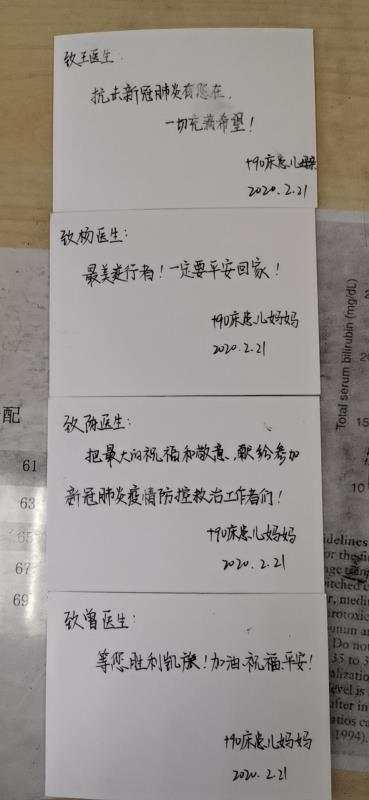 致王医生:
抗击新冠肺炎有您在,
一切充满希望!
+90床患儿妈妈
2020.2.21
致杨医生:
最美逆行者!一定要平安回家!
+90床患儿妈妈
2020.2.21
致陈医生:
把最大的祝福和敬意,献给参加
新冠肺炎疫情防控救治工作者们!
+90床患儿妈妈
2020.2.21
致曾医生:
等您胜利凯旋!加油.祝福.平安!
+90床患儿妈妈
2020.2.21
配
61
63
65
67
69
Total serum bilirubin (mg/dL)
15
10
idelines
for the
or, medi
Do not
35 to 3
level is
after in
atios ca
1994).